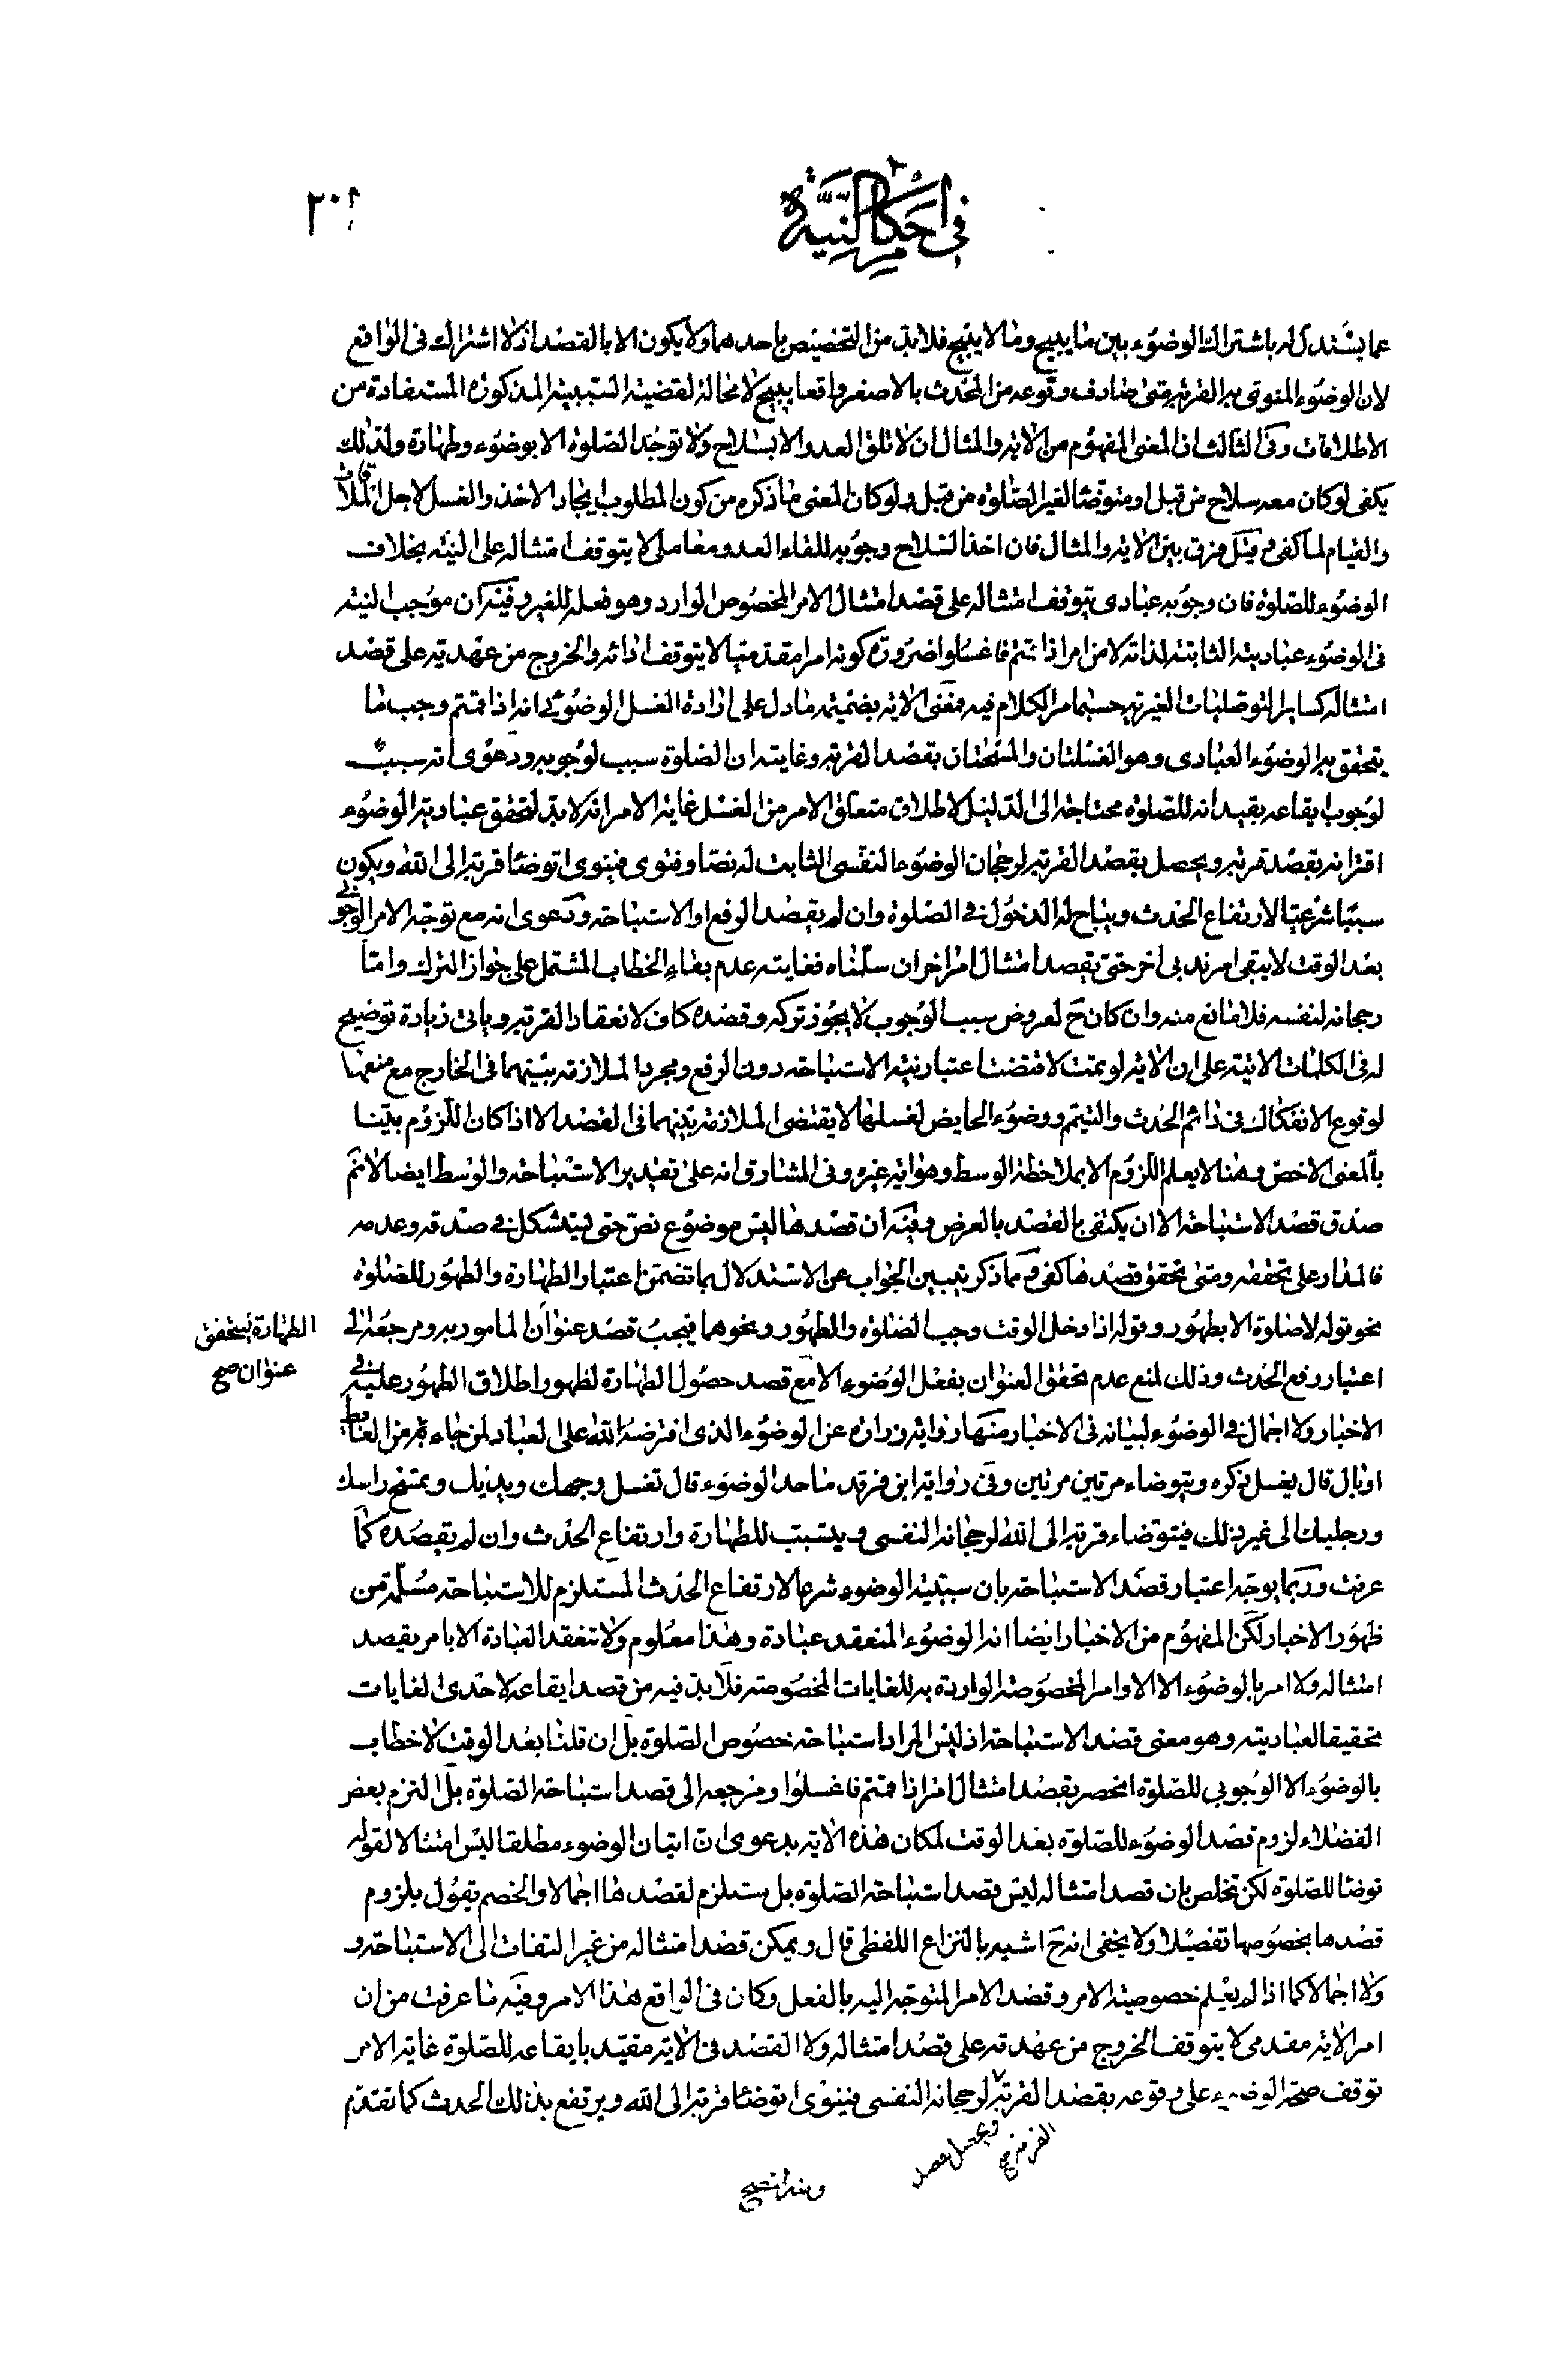 في احكام النية
٣٠١
عما يستدل له باشتراك الوضوء بين ما يبيح وما لا يبيح فلا بد من التخصيص باحدهما ولا يكون الا بالقصد اذ لا اشتراك في الواقع
لان الوضوء المنوي به القربة متى صادف وقوعه من المحدث بالاصغر واقعا يبيح لا محالة لقضية السببية المذكورة المستفادة من
الاطلاقات وفي الثالث ان المعنى المفهوم من الاية والمثال ان لا تلق العدو الا بسلاح ولا توجد الصلوة الا بوضوء وطهارة ولذلك
يكفى لو كان معه سلاح من قبل او متوضئا لغير الصلوة من قبل ولو كان المعنى ما ذكره من كون المطلوب ايجاد الاخذ والغسل لاجل الملاقات
والقيام لما كفى وقيل فرق بين الاية والمثال فان اخذ السلاح وجوبه للقاء العدو معاملى لا يتوقف امتثاله على النية بخلاف
الوضوء للصلوة فان وجوبه عبادى يتوقف امتثاله على قصد امتثال الامر المخصوص الوارد وهو فعله للغير وفيه ان موجب النية
في الوضوء عباديته الثابتة لذاته لا من امر اذا قمتم فاغسلوا ضرورة كونه امرا مقدميا لا يتوقف ادائه والخروج من عهدته على قصد
امتثاله كساير التوصليات الغيرية حسبما مر الكلام فيه فمعنى الاية بضميمة ما دل على ارادة الغسل الوضوئى انه اذا قمتم وجب ما
يتحقق به الوضوء العبادى وهو الغسلتان والمسحتان بقصد القربة وغايته ان الصلوة سبب لوجوبه ودعوى انه سبب
لوجوب ايقاعه بقيد انه للصلوة محتاجة الى الدليل لاطلاق متعلق الامر من الغسل غاية الامر انه لا بد لتحقق عبادية الوضوء
اقترانه بقصد قربة ويحصل بقصد القربة لرجحان الوضوء النفسى الثابت له نصا وفتوى فينوى اتوضئا قربة الى الله ويكون
سببا شرعيا لارتفاع الحدث ويباح له الدخول في الصلوة وان لم يقصد الرفع او الاستباحة ودعوى انه مع توجه الامر الوجوبى
بعد الوقت لا يبقى امر ندبى اخر حتى يقصد امتثال امر اخر ان سلمناه فغايته عدم بقاء الخطاب المشتمل على جواز الترك واما
رجحانه لنفسه فلا مانع منه وان كان ح لعروض سبب الوجوب لا يجوز تركه وقصده كاف لانعقاد القربة وياتى زيادة توضيح
له في الكلمات الاتية على ان الاية لو تمت لاقتضت اعتبار نية الاستباحة دون الرفع ومجرد الملازمة بينهما في الخارج مع منعها
لوقوع الانفكاك في دائم الحدث والتيمم ووضوء الحايض لغسلها لا يقتضى الملازمة بينهما في القصد الا اذا كان اللزوم بينا
بالمعنى الاخص وهنا لا يعلم اللزوم الا بملاحظة الوسط وهو اية غيره وفي المشارق انه على تقدير الاستباحة والوسط ايضا لا نم
صدق قصد الاستباحة الا ان يكتفى بالقصد بالعرض وفيه ان قصدها ليس موضوع نص حتى يستشكل في صدقه وعدمه
فالمدار على تحققه ومتى تحقق قصدها كفى ومما ذكر يتبين الجواب عن الاستدلال بما تضمن اعتبار الطهارة والطهور للصلوة
نحو قوله لا صلوة الا بطهور وقوله اذا دخل الوقت وجب الصلوة والطهور ونحوهما فيجب قصد عنوان المامور به ومرجعه الى
الطهارة ليتحقق
عنوان صح
اعتبار رفع الحدث وذلك لمنع عدم تحقق العنوان بفعل الوضوء الا مع قصد حصول الطهارة لظهور اطلاق الطهور عليه في
الاخبار ولا اجمال في الوضوء لبيانه في الاخبار منها رواية زرارة عن الوضوء الذى افترضه الله على العباد لمن جاء من الغائط
او بال قال يغسل ذكره ويتوضاء مرتين مرتين وفي رواية ابن فرقد ما حد الوضوء قال تغسل وجهك ويديك وتمسح راسك
ورجليك الى غير ذلك فيتوضاء قربة الى الله لرجحانه النفسى ويتسبب للطهارة وارتفاع الحدث وان لم يقصده كما
عرفت وربما يوجه اعتبار قصد الاستباحة بان سببية الوضوء شرعا لارتفاع الحدث المستلزم للاستباحة مسلمة من
ظهور الاخبار لكن المفهوم من الاخبار ايضا انه الوضوء المنعقد عبادة وهذا معلوم ولا تنعقد العبادة الا بامر يقصد
امتثاله ولا امر بالوضوء الا الاوامر المخصوصة الواردة به للغايات المخصوصة فلا بد فيه من قصد ايقاعه لاحدى الغايات
تحقيقا لعباديته وهو معنى قصد الاستباحة اذ ليس المراد استباحة خصوص الصلوة بل ان قلنا بعد الوقت لا خطاب
بالوضوء الا الوجوبي للصلوة انحصر بقصد امتثال امر اذا قمتم فاغسلوا ومرجعه الى قصد استباحة الصلوة بل التزم بعض
الفضلاء لزوم قصد الوضوء للصلوة بعد الوقت لمكان هذه الاية بدعوى ان اتيان الوضوء مطلقا ليس امتثالا لقوله
توضئا للصلوة لكن تخلص بان قصد امتثاله ليس قصد استباحة الصلوة بل مستلزم لقصدها اجمالا والخصم يقول بلزوم
قصدها بخصوصها تفصيلا ولا يخفى انه ح اشبه بالنزاع اللفظى قال ويمكن قصد امتثاله من غير التفات الى الاستباحة و
ولا اجمالا كما اذا لم يعلم خصوصية الامر وقصد الامر المتوجه اليه بالفعل وكان في الواقع هذا الامر وفيه ما عرفت من ان
امر الاية مقدمى لا يتوقف الخروج من عهدته على قصد امتثاله ولا القصد في الاية مقيد بايقاعه للصلوة غاية الامر
توقف صحة الوضوء على وقوعه بقصد القربة لرجحانه النفسى فينوى اتوضئا قربة الى الله ويرتفع بذلك الحدث كما تقدم
ويحصل بقصد